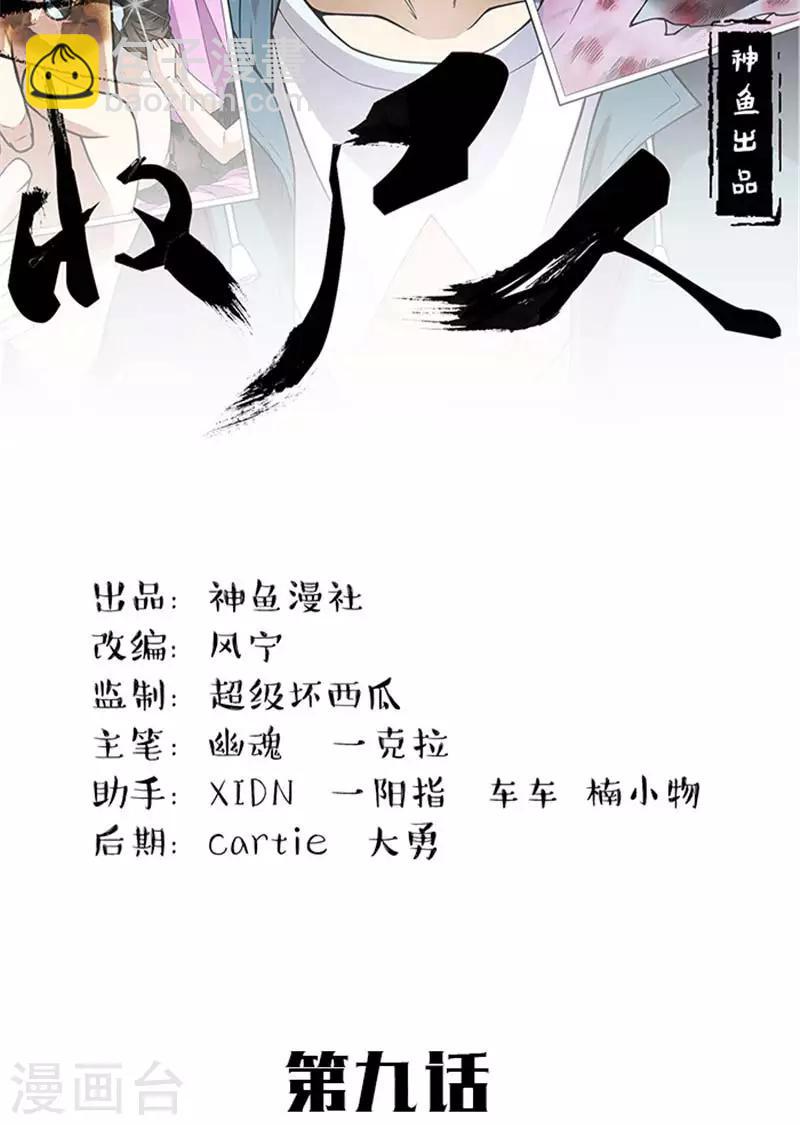 包子漫畫
baozimh.com
神鱼出品
收尸人
出品: 神鱼漫社
改编: 风宁
监制: 超级坏西瓜
主笔: 幽魂 一克拉
助手: XIDN 一阳指 车车 楠小物
后期: cartie 大勇
第九话
漫画台